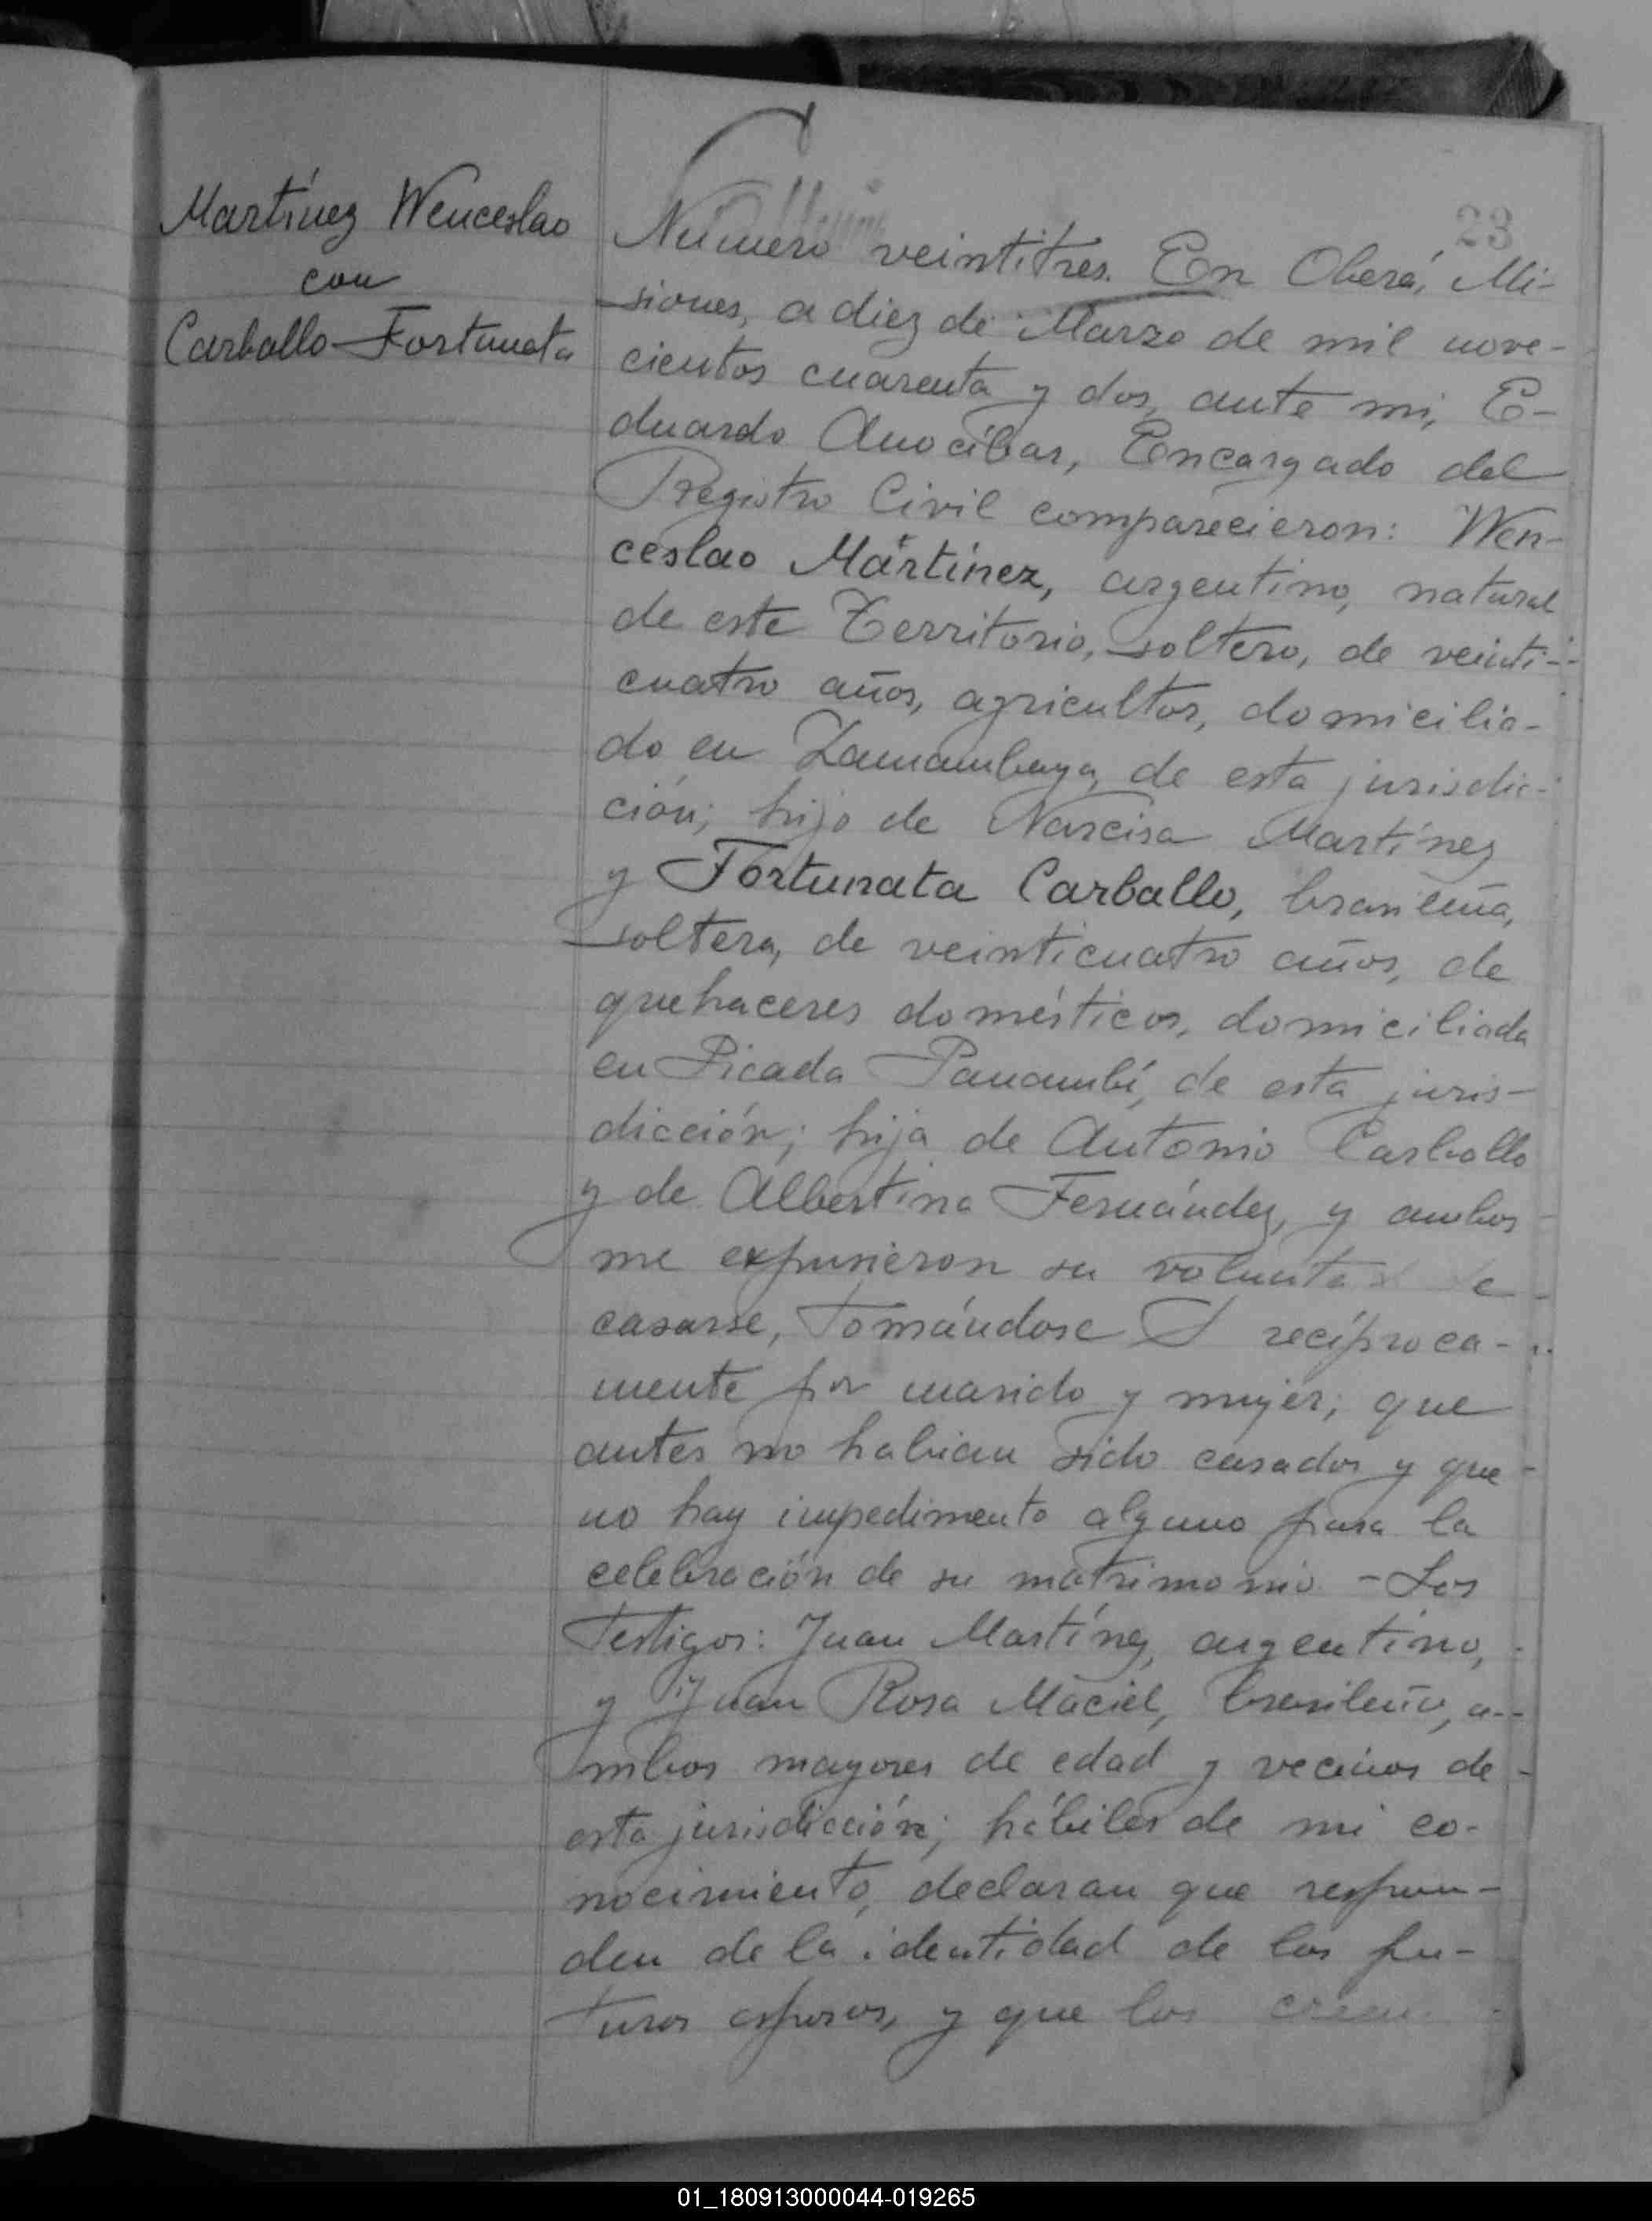 Martínez Wenceslao
con
Carballo Fortunata
23
Número veintitres. En Oberá, Mi-
siones, a diez de Marzo de mil nove-
cientos cuarenta y dos, ante mi, E-
duardo Anocíbar, Encargado del
Registro Civil comparecieron: Wen-
ceslao Mártinez, argentino, natural
de este Territorio, soltero, de veinti-
cuatro años, agricultor, domicilia-
do en de esta jurisdic-
ción; hijo de Narcisa Martínez
y Fortunata Carballo, brasileña,
soltera, de veinticuatro años, de
quehaceres domésticos, domiciliada
en Picada Panambí, de esta juris-
dicción; hija de Antonio Carballo
y de Albertina Fernández, y ambos
me expusieron su voluntad de
casarse, tomándose recíproca-
mente por marido y mujer; que
antes no habian sido casados y que
no hay impedimento alguno para la
celebración de su matrimonio - Los
Testigos: Juan Martínez, argentino,
y Juan Rosa Máciel, brasileño, a-
mbos mayores de edad y vecinos de
esta jurisdicción; hábiles de mi co-
nocimiento, declaran que respon-
den de la identidad de los fu-
turos esposos, y que los creen
01_180913000044-019265